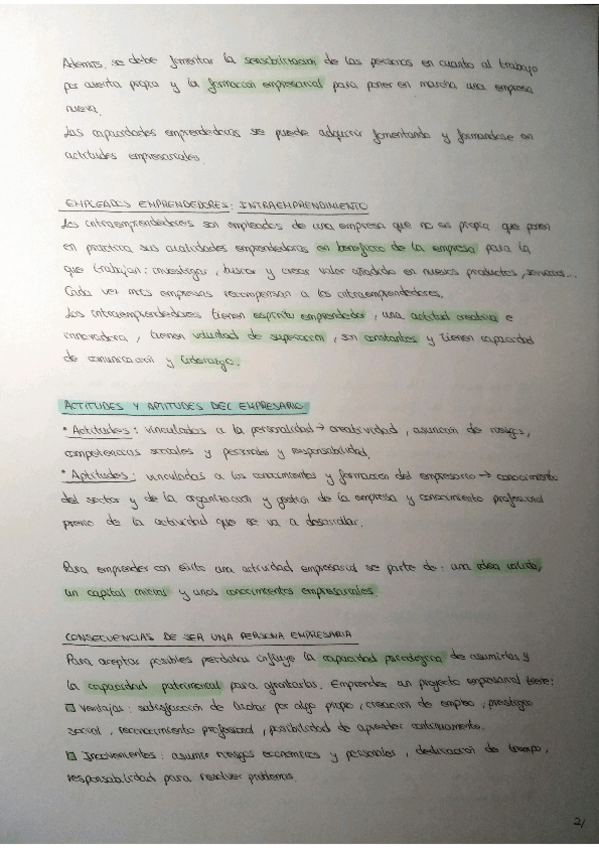 Además, se debe fomentar la sensibilización de las personas en cuanto al trabajo
por cuenta propia y la formación empresarial para poner en marcha una empresa
nueva.
Las capacidades emprendedoras se puede adquirir fomentando y formandose en
actitudes empresariales.
EMPLEADOS EMPRENDEDORES: INTRAEMPRENDIMIENTO
Los intraemprendedores son empleados de una empresa que no es propia que ponen
en practica sus cualidades emprendedoras en beneficio de la empresa para la
que trabajan: investigar, buscar y crear valor añadido en nuevos productos, servicios...
Cada vez más empresas recompensan a los intraemprendedores.
Los intraemprendedores tienen espíritu emprendedor, una actitud creativa e
innovadora, tienen voluntad de superación, son constantes y tienen capacidad
de comunicación y liderazgo.
ACTITUDES Y APTITUDES DEL EMPRESARIO
• Actitudes: vinculadas a la personalidad → creatividad, asunción de riesgos,
competencias sociales y personales y responsabilidad.
• Aptitudes: vinculadas a los conocimientos y formación del empresario → conocimiento
del sector y de la organización y gestión de la empresa y conocimiento profesional
previo de la actividad que se va a desarrollar.
Para emprender con éxito una actividad empresarial se parte de: una idea válida,
un capital inicial y unos conocimientos empresariales
CONSECUENCIAS DE SER UNA PERSONA EMPRESARIA
Para aceptar posibles perdidas influye la capacidad psicológica de asumirlas y
la capacidad patrimonial para afrontarlas. Emprender un proyecto empresarial tiene:
Ventajas: satisfacción de luchar por algo propio, creación de empleo, prestigio
social, reconocimiento profesional, posibilidad de aprender continuamente.
Inconvenientes: asumir riesgos económicos y personales, dedicación de tiempo,
responsabilidad para resolver problemas.
2/